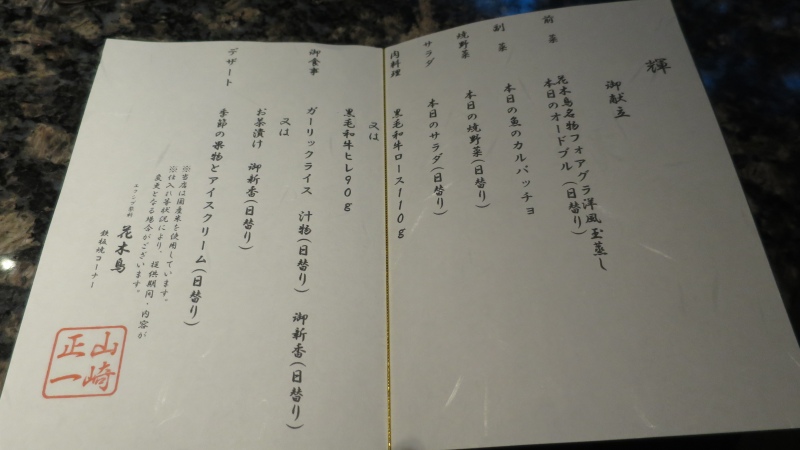 輝
御献立
前菜
花木鳥名物フォアグラ洋風玉蒸し
本日のオードブル(日替り)
副菜
本日の魚のカルパッチョ
焼野菜
本日の焼野菜(日替り)
サラダ
本日のサラダ(日替り)
肉料理
黒毛和牛ロース110g
又は
黒毛和牛ヒレ90g
御食事
ガーリックライス 汁物(日替り) 御新香(日替り)
又は
お茶漬け 御新香(日替り)
デザート
季節の果物とアイスクリーム(日替り)
※当店は国産米を使用しています。
※仕入れ等状況により、提供期間・内容が
変更となる場合がございます。
花木鳥
鉄板焼コーナー
山崎
正一